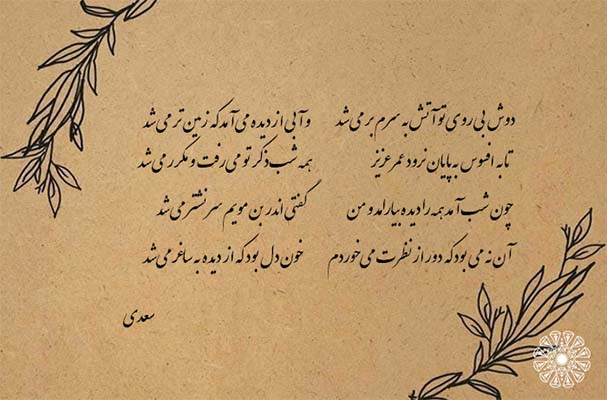 دوش بی روی تو آتش به سرم بر می‌شد و آبی از دیده می‌آمد که زمین تر می‌شد
تا به افسوس به پایان نرود عمر عزیز همه شب ذکر تو می‌رفت و مکرر می‌شد
چون شب آمد همه را دیده بیارامد و من گفتی اندر بن مویم سر نشتر می‌شد
آن نه می بود که دور از نظرت می‌خوردم خون دل بود که از دیده به ساغر می‌شد
سعدی